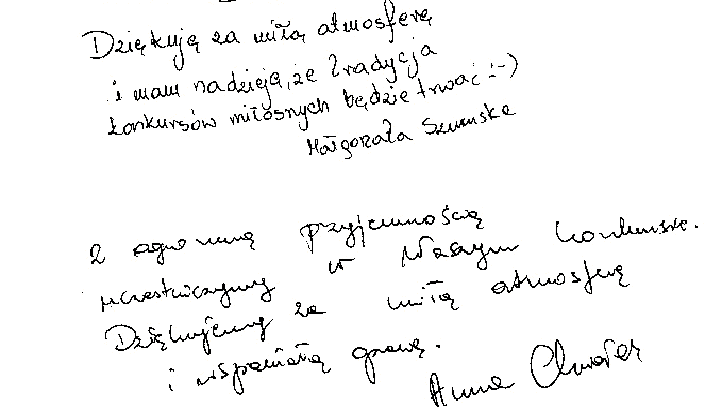 Dziękuję za miłą atmosferę
i mam nadzieję, że tradycja
konkursów miłosnych będzie trwać :-)
Małgorzata Szumska
Z ogromną przyjemnością
uczestniczymy w Waszym konkursie.
Dziękujemy za miłą atmosferę
i wspaniałą
Anna